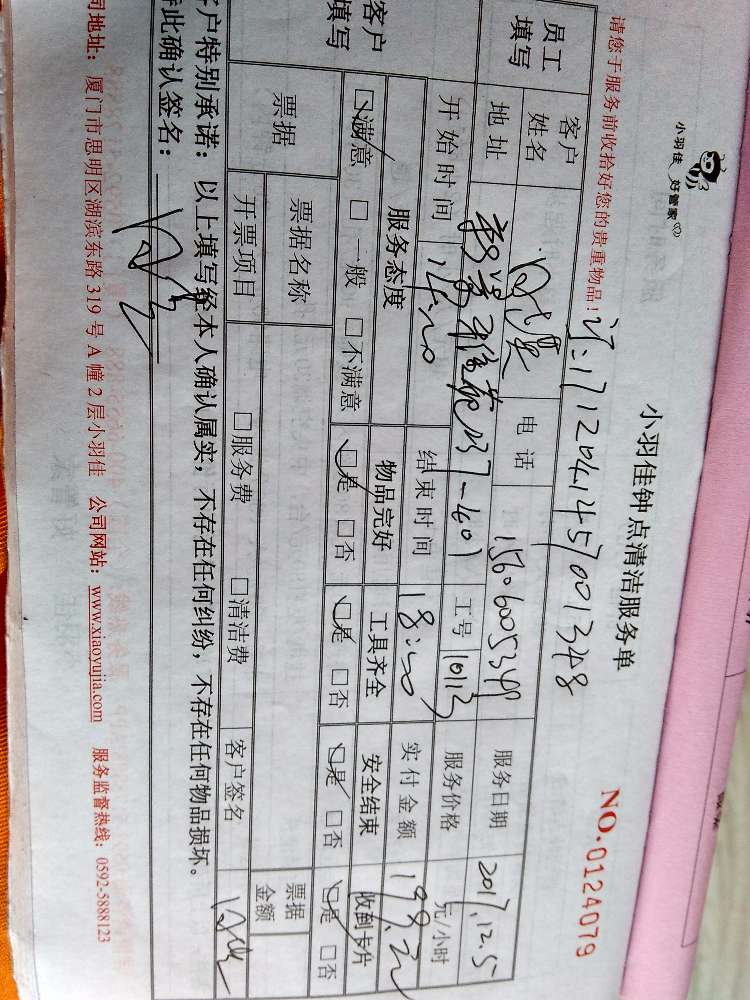 小羽佳 好管家
小羽佳钟点清洁服务单
NO.0124079
请您于服务前收拾好您的贵重物品!
1712041457001348
员工填写 客户姓名 电话 服务日期 2017.12.5
地址 37-401 工号 10113 服务价格 元/小时
开始时间 14:00 结束时间 18:00 实付金额
客户填写 服务态度 物品完好 工具齐全 安全结束 收到卡片
□满意 □一般 □不满意 □是 □否 □是 □否 □是 □否 □是 □否
票据 票据名称 票据金额
开票项目 □服务费 □清洁费 客户签名
客户特别承诺:以上填写经本人确认属实,不存在任何纠纷,不存在任何物品损坏。
此确认签名:
司地址:厦门市思明区湖滨东路319号A幢2层小羽佳 公司网站:www.xiaoyujia.com 服务监督热线:0592-5888123